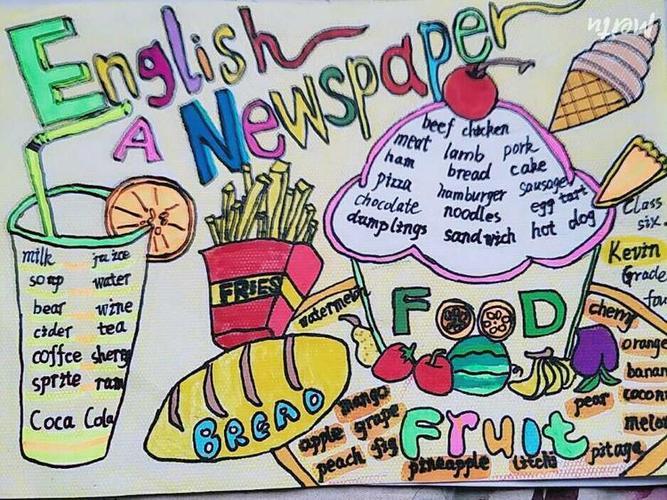 English
A Newspaper
beef chicken
meat lamb pork
ham bread cake
pizza hamburger sausage
chocolate noodles egg tart
dumplings sandwich hot dog
Class
six
Kevin
Grade
milk juice
soup water
bear wine
cider tea
coffee sherry
sprite
Coca Cola
FRIES
BREAD
FOOD
watermelon
cherry
orange
pear
mango
apple grape
peach fig
pineapple litchi
Fruit